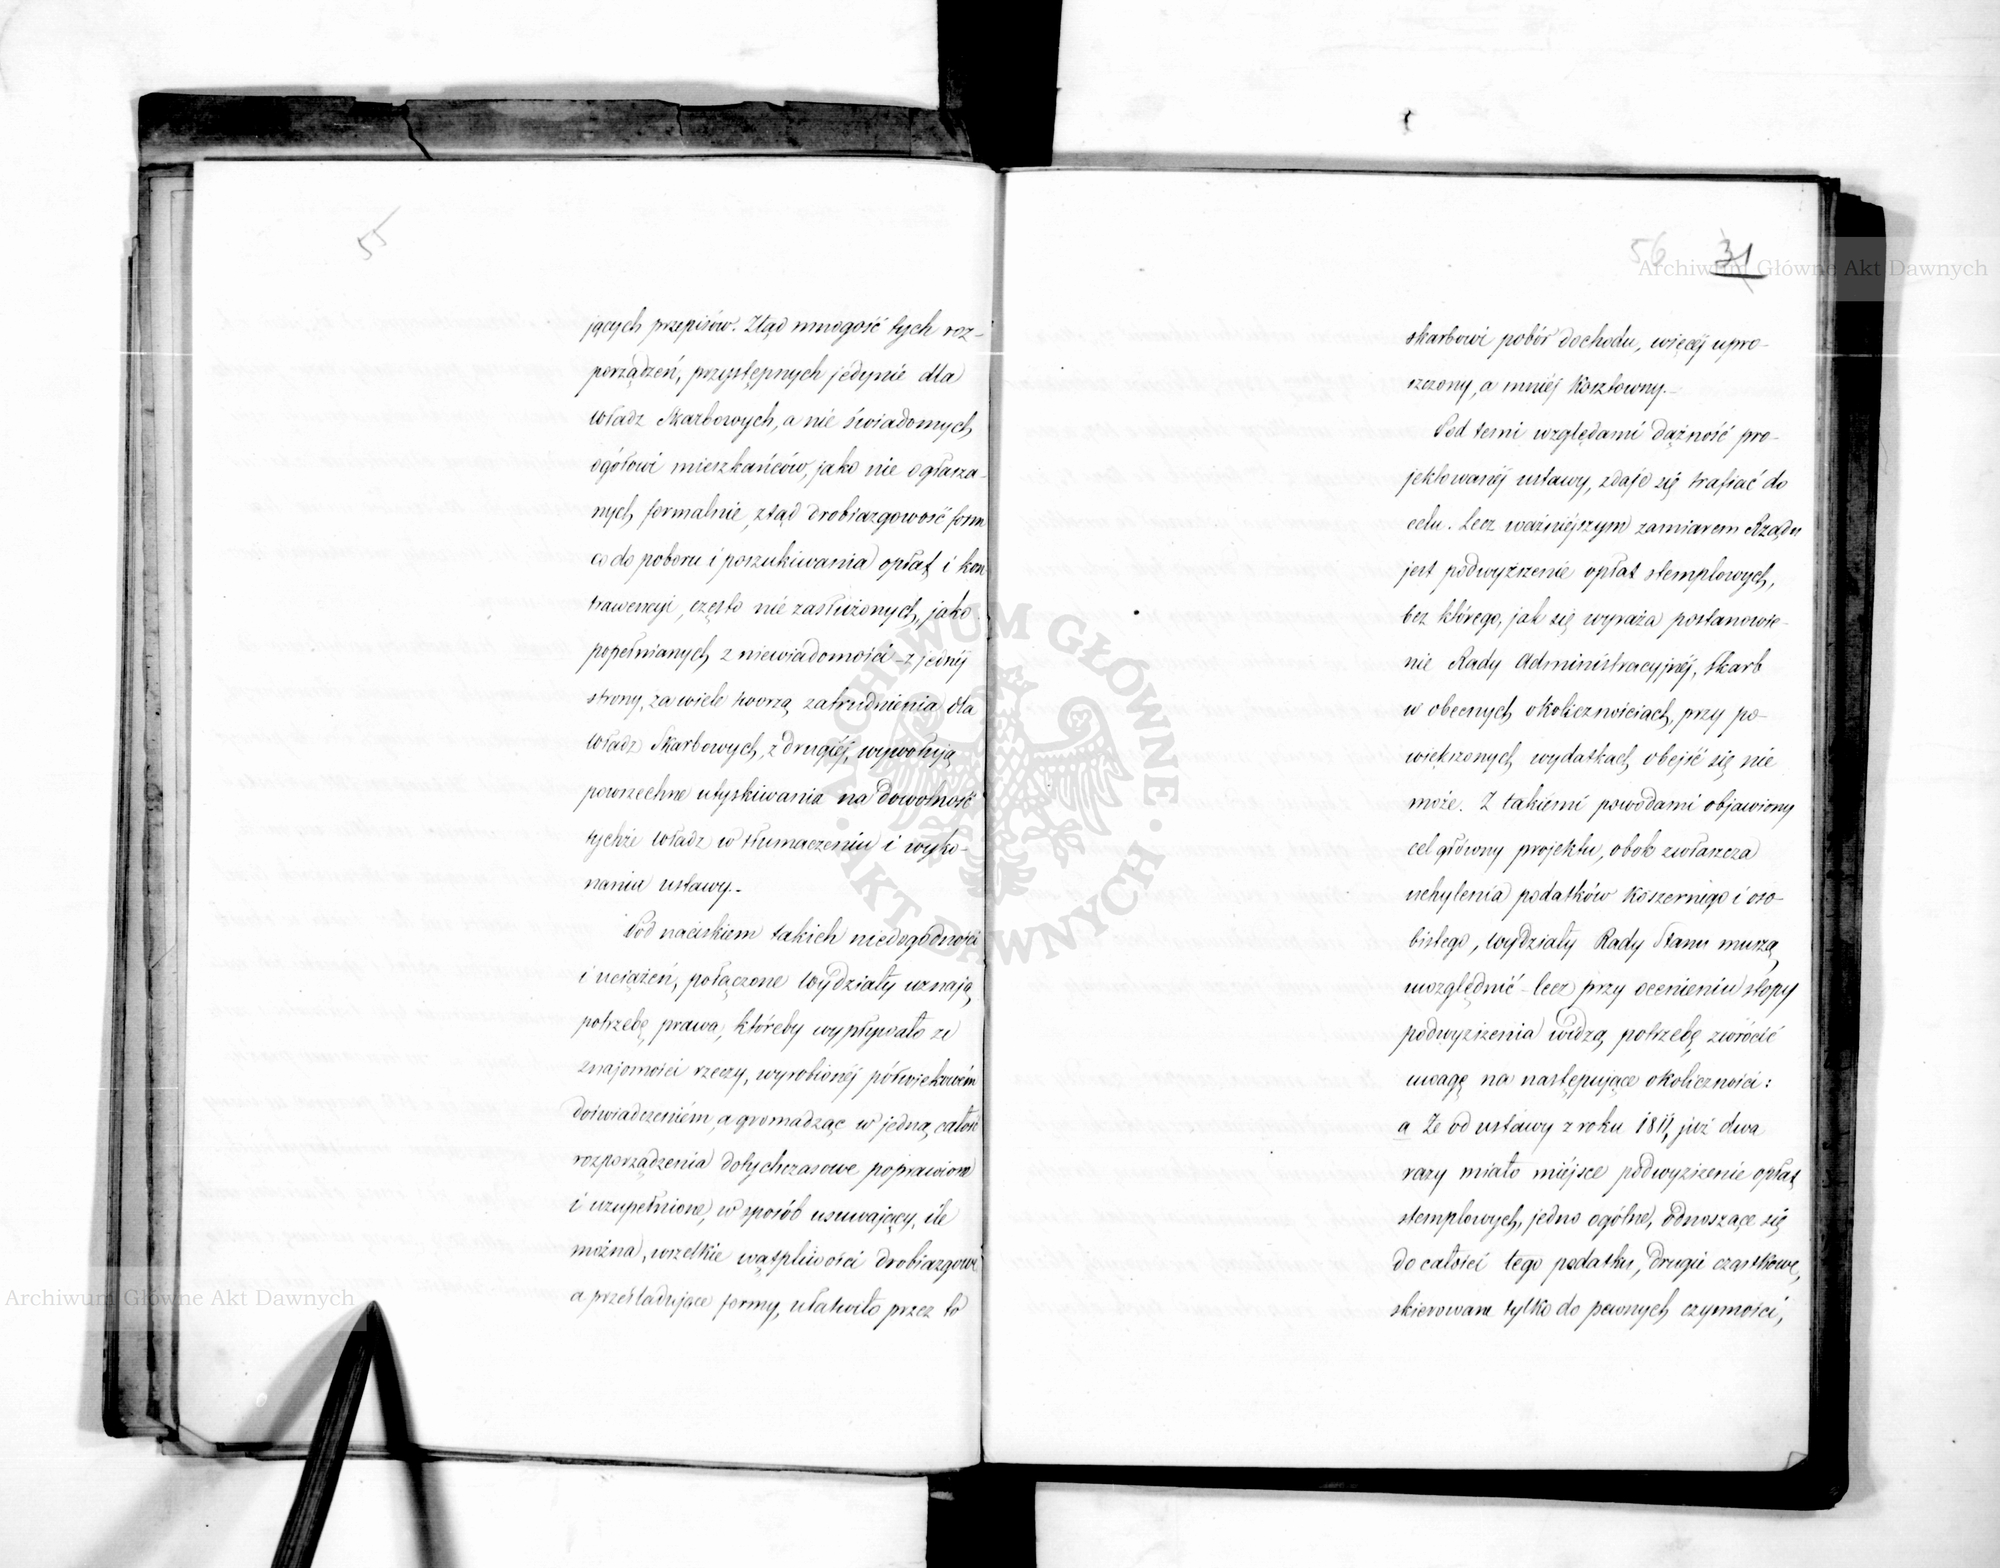 55
jących przepisów. Ztąd mnogość tych roz-
porządzeń, przystępnych jedynie dla
władz Skarbowych, a nie świadomych
ogółowi mieszkańców, jako nie ogłasza-
nych formalnie, ztąd drobiazgowość form
co do poboru i poszukiwania opłat i kon
trawencyi, często nie zasłużonych, jako
popełnianych z niewiadomości – z jednéj
strony, za wiele tworzą zatrudnienia dla
władz Skarbowych, z drugiéj, wywołują
powszechne utyskiwania na dowolność
tychże władz w tłumaczeniu i wyko-
nania ustawy.-
Pod naciskiem takich niedogodności
i uciążeń, połączone Wydziały uznają
potrzebę prawa, któreby wypływało ze
znajomości rzeczy, wyrobionéj półwiekowém
doświadczeniém, a gromadząc w jedną całość
rozporządzenia dotychczasowe poprawione
i uzupełnione, w sposób usuwający, ile
można, wszelkie wątpliwości drobiazgowe
a prześladujące formy, ułatwiło przez to
56 31
skarbowi pobór dochodu, więcéj upro-
szczony, a mniéj kosztowny.-
Pod temi względami dążność pro-
jektowanéj ustawy, zdaje się trafiać do
celu. Lecz ważniejszym zamiarem Rządu
jest podwyższenie opłat stemplowych,
bez którego, jak się wyraża postanowie-
nie Rady Administracyjnéj, Skarb
w obecnych okolicznościach, przy po-
większonych wydatkach obejść się nie
może. Z takiemi powodami objawiony
cel główny projektu, obok zwłaszcza
uchylenia podatków Koszernego i oso-
bistego, Wydziały Rady Stanu muszą
uwzględnić – lecz przy ocenieniu stopy
podwyższenia widzą potrzebę zwrócić
uwagę na następujące okoliczności:
a Że od ustawy z roku 1811, już dwa
razy miało miéjsce podwyższenie opłat
stemplowych, jedno ogólne, odnoszące się
do całości tego podatku, drugie cząstkowe,
skierowane tylko do pewnych czynności,
Archiwum Główne Akt Dawnych
Archiwum Główne Akt Dawnych
ARCHIWUM GŁÓWNE · AKT DAWNYCH ·